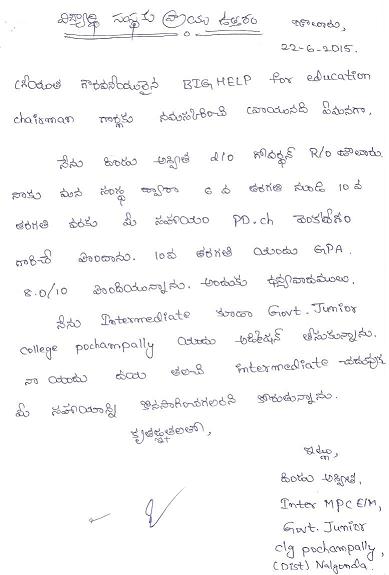 విద్యార్థి సంస్థకు వ్రాయు ఉత్తరం
చౌటూరు,
22-6-2015.
గౌరవనీయులైన BIG HELP for education
chairman గార్లకు నమస్కరించి వ్రాయునది ఏమనగా,
నేను బిందు అశ్విత d/o గోవర్ధన్ R/o
నాకు మన సంస్థ ద్వారా 6 వ తరగతి నుండి 10 వ
తరగతి వరకు మీ సహాయం PD.ch వెంకటేశం
గారిచే పొందాను. 10వ తరగతి యందు GPA
8.0/10 పొందియున్నాను. అందుకు ధన్యవాదములు.
నేను Intermediate కూడా Govt. Junior
college pochampally యందు అడ్మిషన్ తీసుకున్నాను.
నా యందు దయ తలచి intermediate చదువుకు
మీ సహాయాన్ని కొనసాగించగలరని కోరుతున్నాను.
కృతజ్ఞతలతో,
ఇట్లు,
బిందు అశ్విత,
Inter MPC E/M,
Govt. Junior
clg pochampally,
(Dist) Nalgonda.